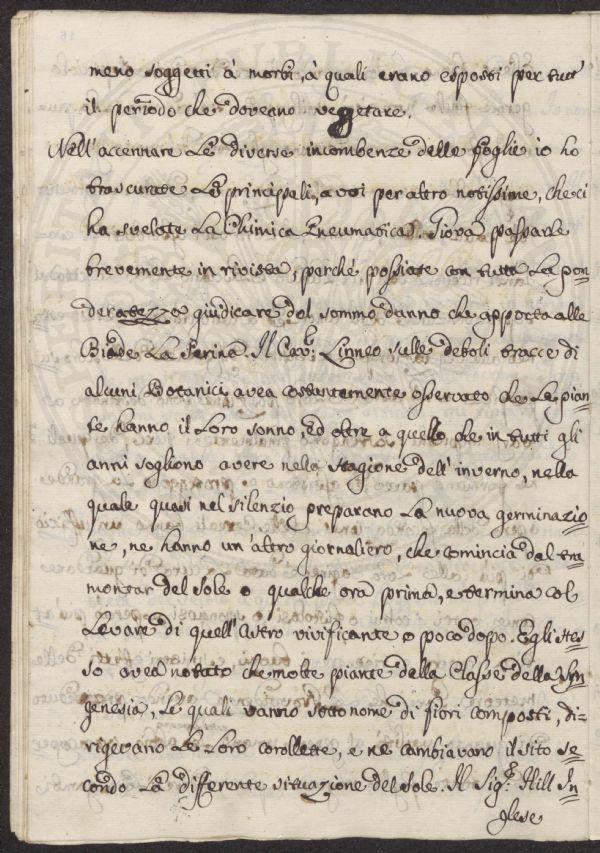 meno soggetti à morbi, à quali erano esposti per tutt'
il periodo che doveano vegetare.
Nell'accennare Le diverse incombenze delle foglie io ho
trascurate Le principali, a voi per altro notissime, che ci
ha svelate La Chimica Pneumatica. Giova passarle
brevemente in rivista, perché possiate con tutta La pon=
deratezza giudicare del sommo danno che apporta alle
Biade La Farina. Il Cav.r Linneo sulle deboli tracce di
alcuni Botanici avea costantemente osservato che Le pian=
te hanno il Loro sonno, ed oltre a quello che in tutti gli
anni sogliono avere nella stagione dell'inverno, nella
quale quasi nel silenzio preparano La nuova germinazio=
ne, ne hanno un altro giornaliero, che comincia dal tra=
montar del sole o qualche ora prima, e termina col
Levare di quell'Astro vivificante o poco dopo. Egli stes=
so avea notato che molte piante della Classe della Sin=
genesia, Le quali vanno sotto nome di fiori composti, di=
rigevano Le Loro corollette, e ne cambiavano il sito se=
condo La differente situazione del sole. Il Sig.r Hill In=
glese